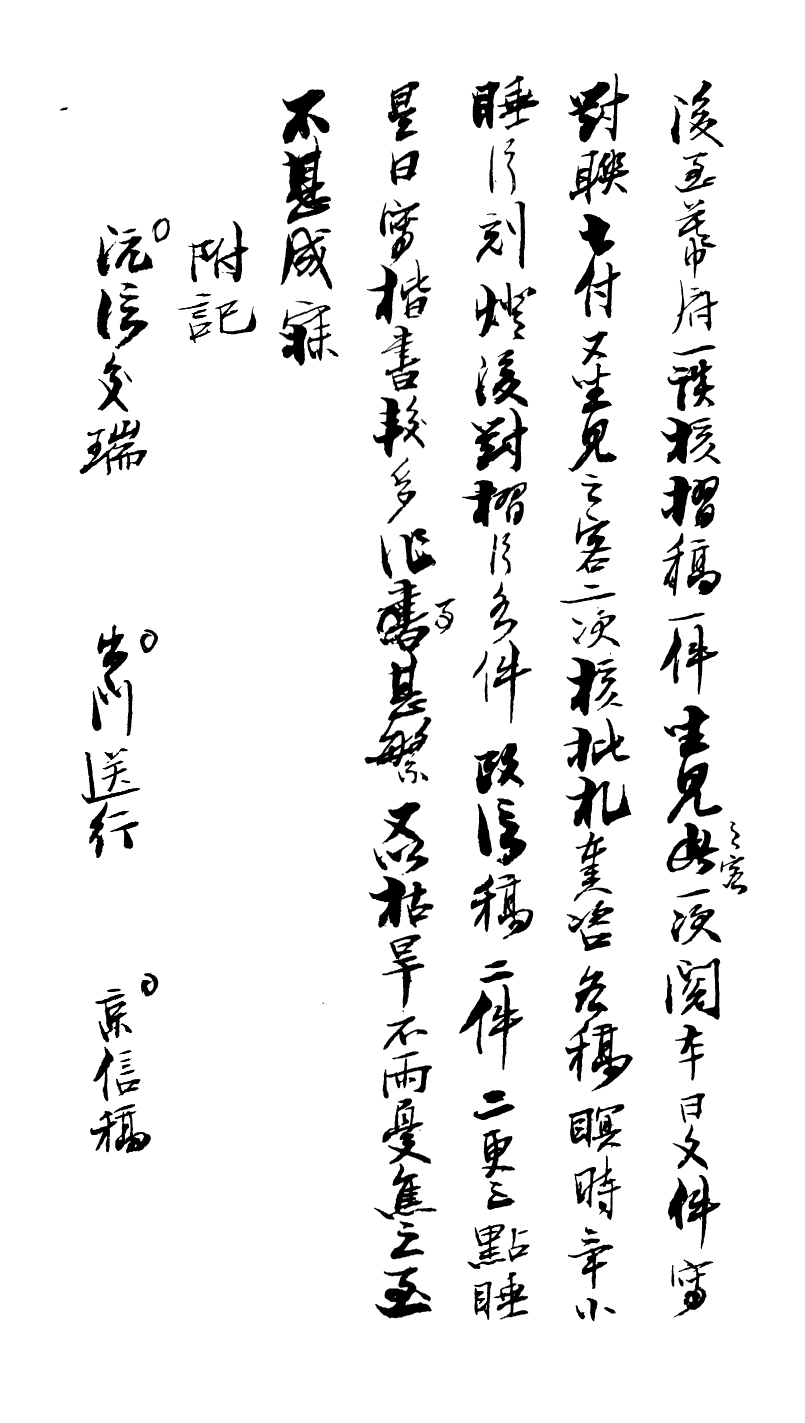 後至幕府一談核摺稿一件坐見之客一次閱本日文件寫
對聯七付又坐見之客二次核批札奏咨各稿瞑時小
睡片刻燈後對摺片各件改信稿二件二更三點睡
是日寫楷書較多作事甚繁又以枯旱不雨憂焦之至
不甚成寐
附記
沅信交瑞 出門送行 京信稿